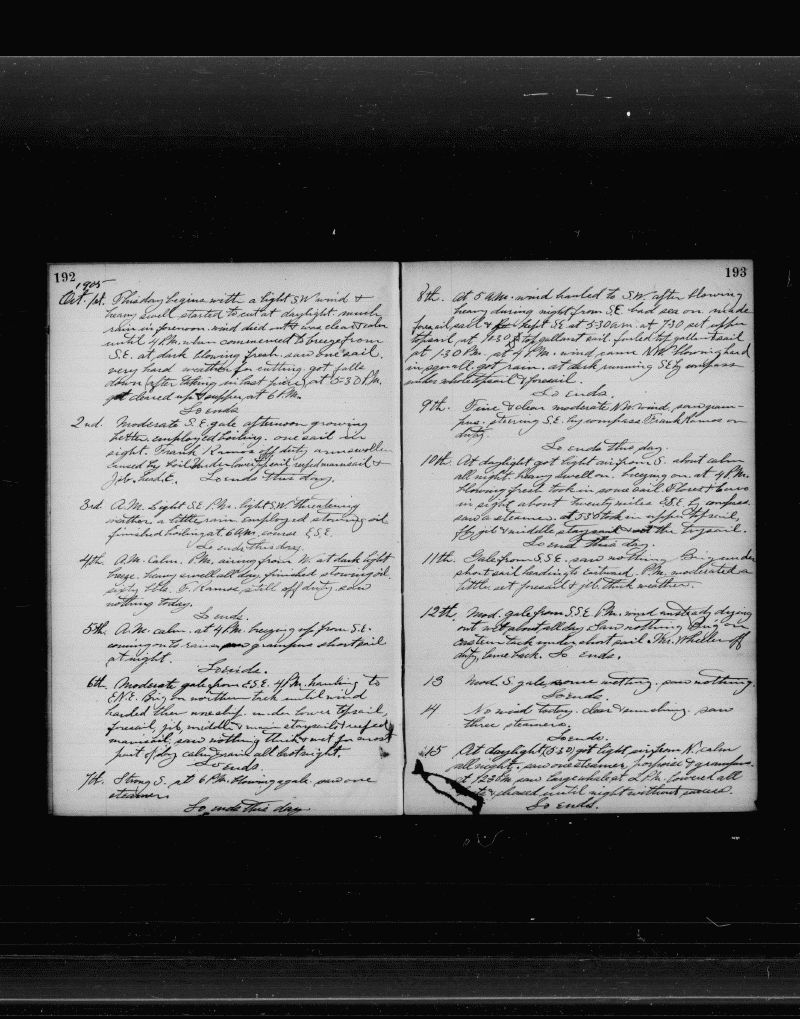 192
1905
Oct. 1st. This day begins with a light S.W. wind &
heavy swell started to cut at daylight much
rain in forenoon. wind died out & was clear & calm
until 4 P.M. when commenced to breeze from
S.E. at dark blowing fresh. saw one sail.
very hard weather for cutting. got falls
down after taking in last piece at 5-30 P.M.
got cleared up & supper at 6 P.M.
So ends
2nd. Moderate S.E. gale afternoon growing
better. employed boiling. one sail in
sight. Frank Ramos off duty arm swollen
caused by boil under lower topsail reefed mainsail &
Jib. head E. So ends this day.
3rd A.M. Light S.E. P.M. light S.W. threatening
weather. a little rain employed stowing oil
finished boiling at 6 A.M. course E.S.E.
So ends this day.
4th. A.M. Calm. P.M. airing from W. at dark light
breeze. heavy swell all day. finished stowing oil.
sixty bbls. F. Ramos still off duty. saw
nothing today.
So ends.
5th. A.M. calm. at 4 P.M. breezing up from S.E.
coming on to rain saw grampus short sail
at night.
So ends.
6th. Moderate gale from E.S.E. 4 P.M. hauling to
E.N.E. Brig on northern tack until wind
hauled then wore ship. under lower topsail,
foresail, jib, middle & main staysails & reefed
mainsail. saw nothing thick & wet for most
part of day calm & rain all last night.
So ends.
7th. Strong S. at 6 P.M. blowing a gale. saw one
steamer.
So ends this day
193
8th. At 5 A.M. wind hauled to S.W. after blowing
heavy during night from S.E. bad sea on made
foresail & kept S.E. at 5-30 a.m. at 7-30 set upper
topsail, at 10-30 top gallant sail. furled top gallant sail
at 1-30 P.M. at 4 P.M. wind came N.W. blowing hard
in squall. got rain. at dark running S.E. by compass
under whole topsail & foresail.
So ends.
9th. Fine & clear moderate N.W. wind. saw gram-
pus. steering S.E. by compass Frank Ramos on
duty.
So ends this day.
10th. At daylight got light air from S. about calm
all night. heavy swell on. breezing on. at 4 P.M.
blowing fresh took in some sail. Flores & Corvo
in sight about twenty miles E.S.E. by compass.
saw a steamer. at 5-30 took in upper topsail,
fly jib & middle staysail & set the trysail.
So ends this day.
11th. Gale from S.S.E. saw nothing Brig under
short sail heading to eastward. P.M. moderated a
little. set foresail & jib. thick weather.
12th. Mod. gale from S.S.E. P.M. wind unsteady drying
out wet about all day saw nothing Brig on
eastern tack under short sail Mr. Wheeler off
duty, lame back. So ends.
13 Mod. S. gale some wetting. saw nothing.
So ends.
14 No wind today. clear & sunshing. saw
three steamers.
So ends.
15 At daylight (5-30) got light air from N. calm
all night. saw one steamer, porpoise & grampus.
at 12-30 P.M. saw large whale at 2 P.M. lowered all
boats & chased until night without success.
So ends.